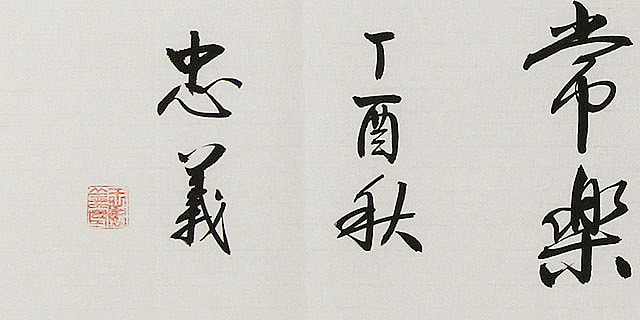 常樂
丁酉秋
忠義